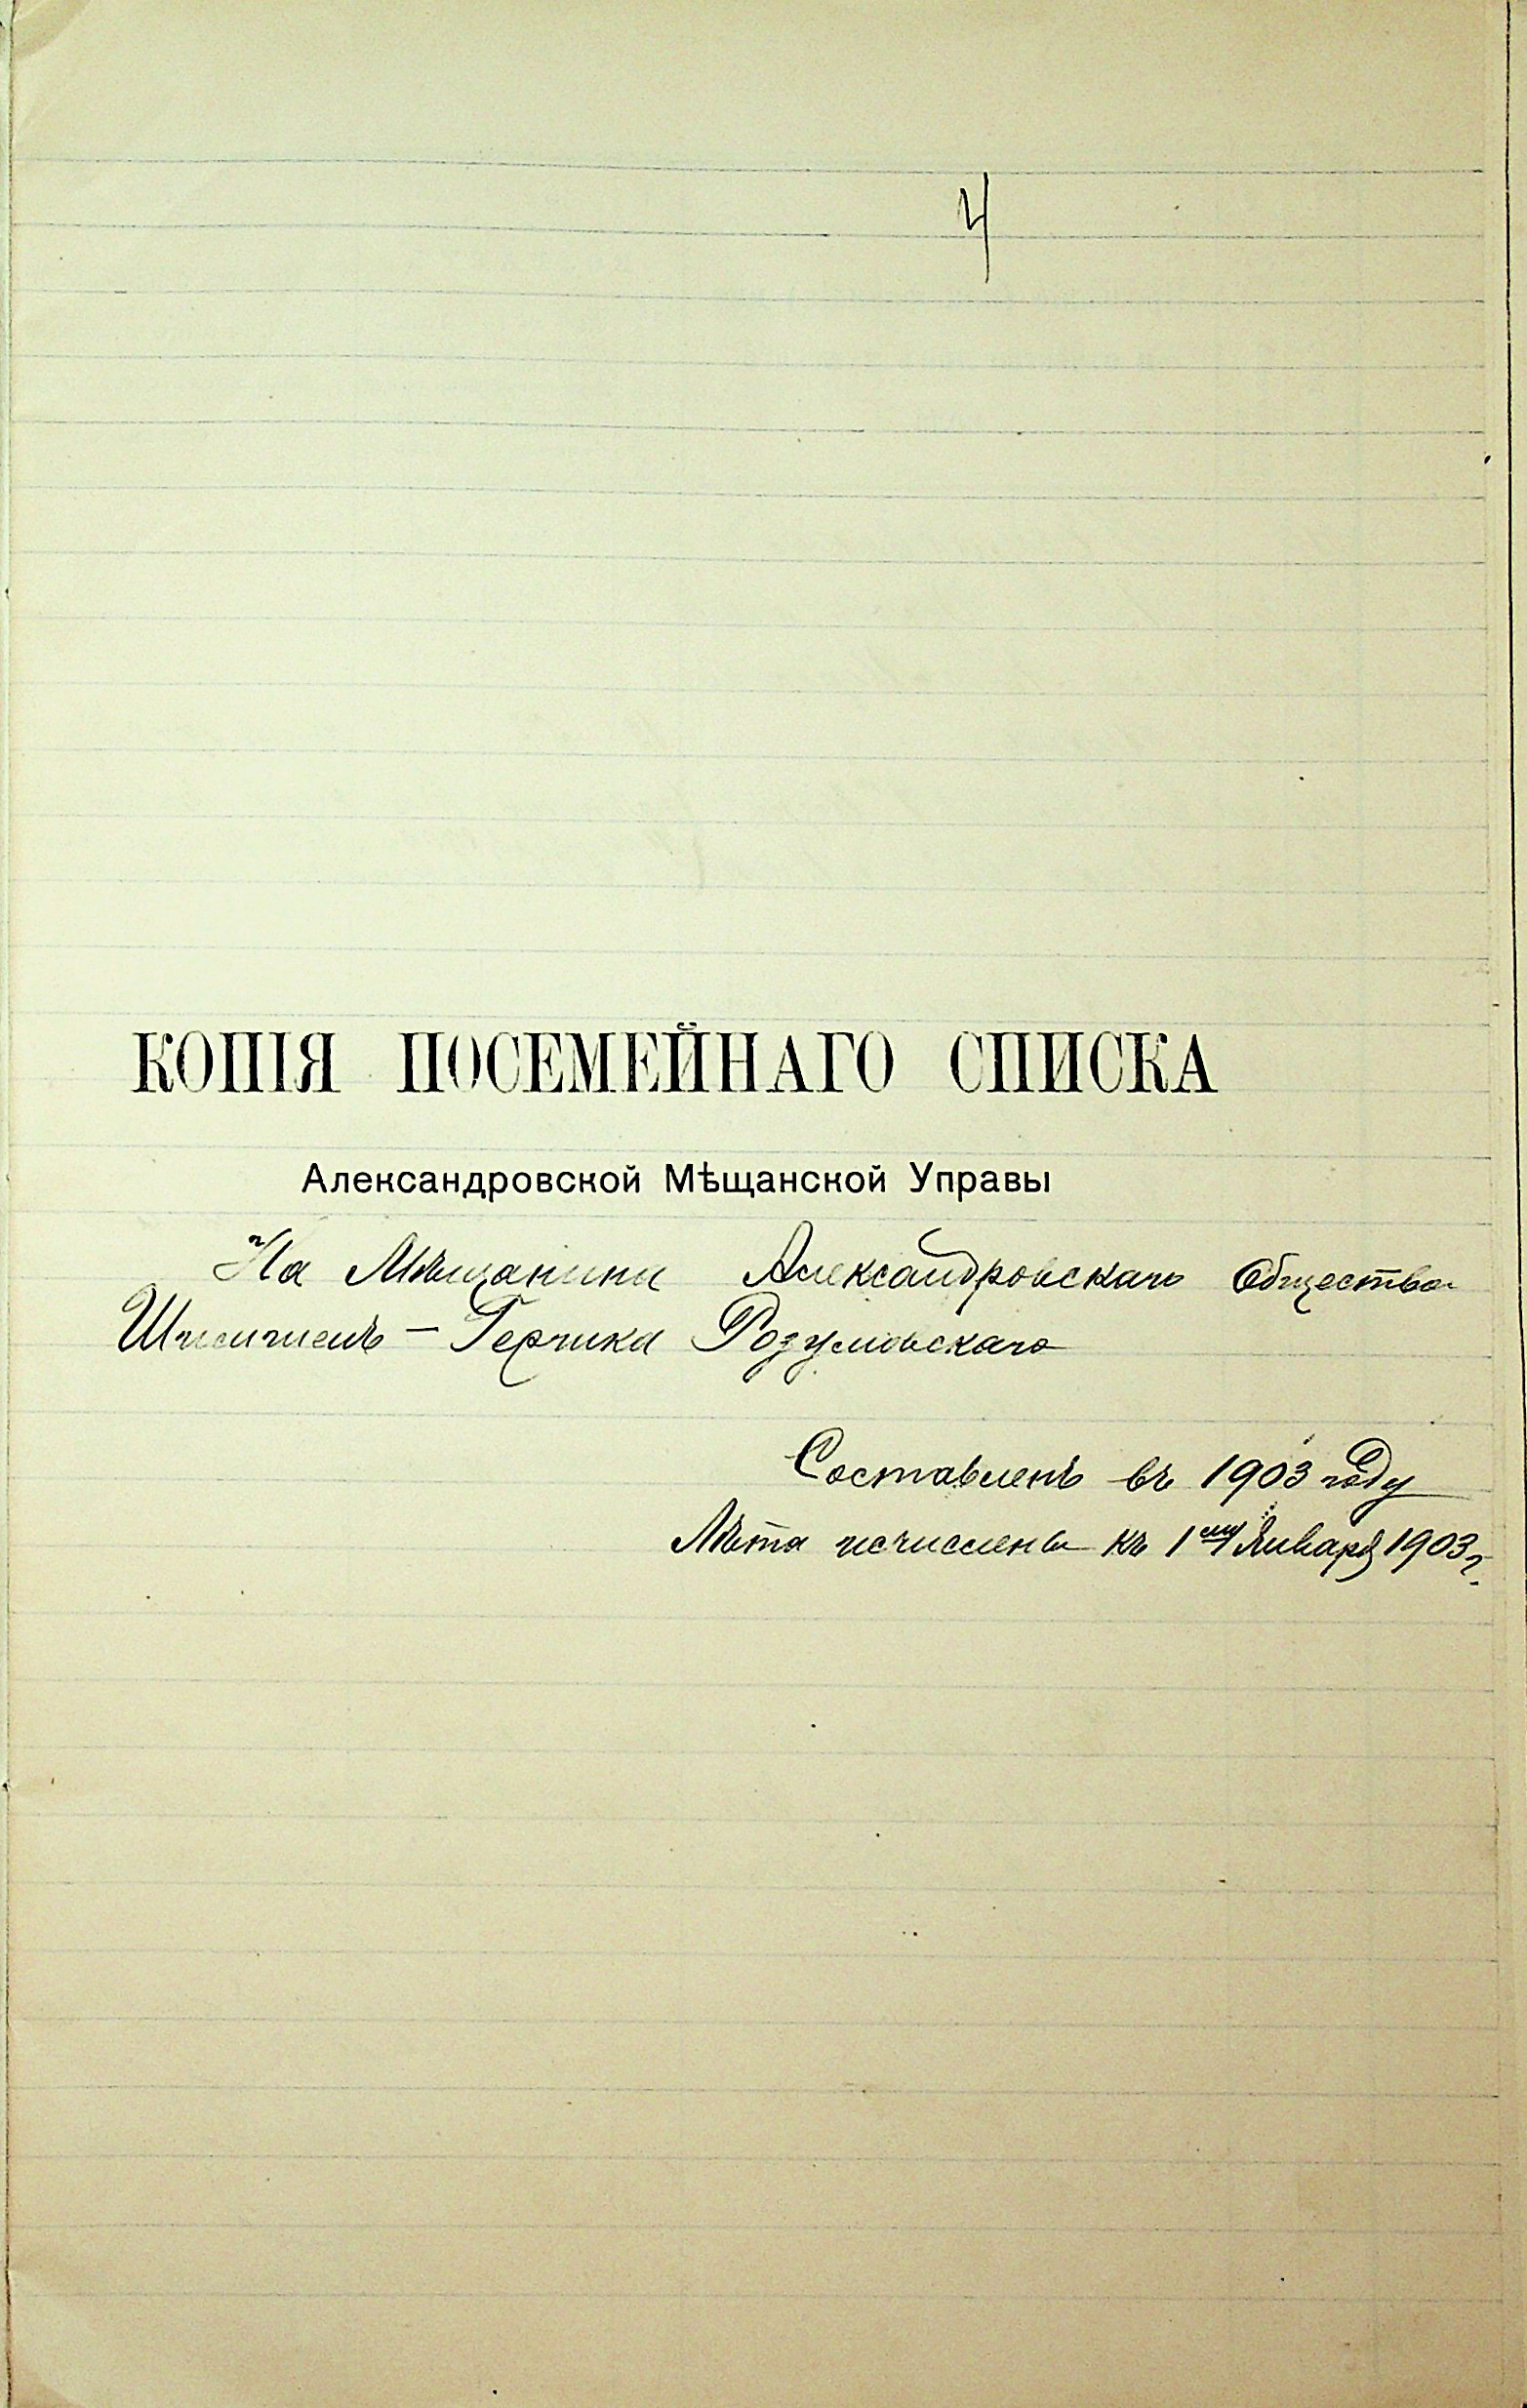 4
КОПІЯ ПОСЕМЕЙНАГО СПИСКА
Александровской Мѣщанской Управы
На Мѣщанина Александровскаго Общества
Шмилель – Герчика Розумовскаго
Составленъ въ 1903 году
Лѣта исчислены къ 1му Января 1903 г.